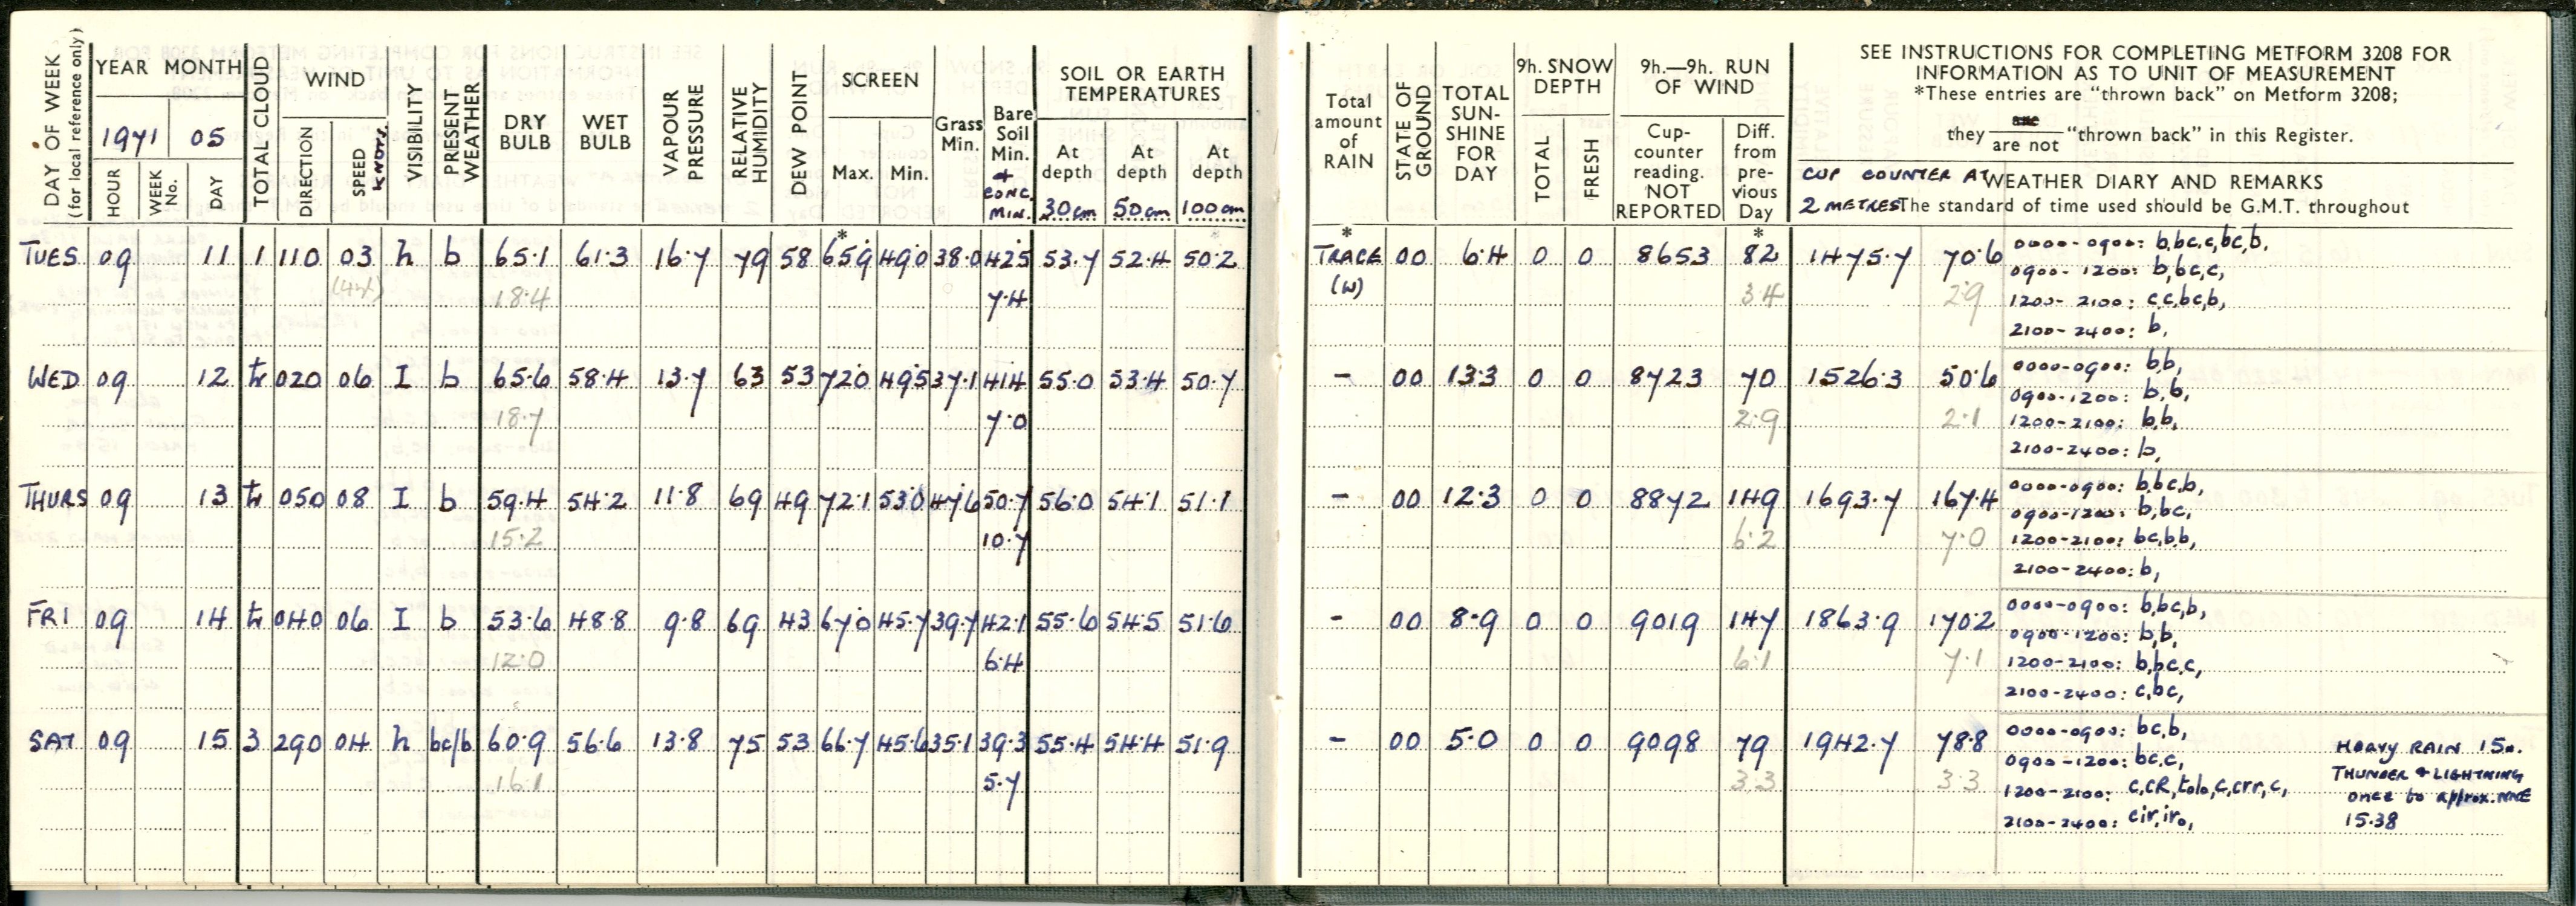 DAY OF WEEK
(for local reference only)
YEAR MONTH
1971 05
HOUR
WEEK No.
DAY
TOTAL CLOUD
WIND
DIRECTION
SPEED KNOTS.
VISIBILITY
PRESENT WEATHER
DRY BULB
WET BULB
VAPOUR PRESSURE
RELATIVE HUMIDITY
DEW POINT
SCREEN
Max. Min.
Grass Min.
Bare Soil Min.
+ CONC. MIN.
SOIL OR EARTH TEMPERATURES
At depth 30cm
At depth 50cm
At depth 100cm
Total amount of RAIN
STATE OF GROUND
TOTAL SUN-SHINE FOR DAY
9h. SNOW DEPTH
TOTAL
FRESH
9h.—9h. RUN OF WIND
Cup-counter reading. NOT REPORTED
Diff. from pre-vious Day
SEE INSTRUCTIONS FOR COMPLETING METFORM 3208 FOR
INFORMATION AS TO UNIT OF MEASUREMENT
*These entries are "thrown back" on Metform 3208;
they are are not "thrown back" in this Register.
CUP COUNTER AT WEATHER DIARY AND REMARKS
2 METRES The standard of time used should be G.M.T. throughout
TUES 09 11 1 110 03 h b 65.1 61.3 16.7 79 58 *65.9 49.0 38.0 42.5 53.7 52.4 50.2 * TRACE 00 6.4 0 0 8653 *82 1475.7 70.6 0000-0900: b,bc,c,bc,b,
0900-1200: b,bc,c,
18.4 7.4 (W) 3.4 2.9 1200-2100: c,c,bc,b,
2100-2400: b,
WED 09 12 tr 020 06 I b 65.6 58.4 13.7 63 53 72.0 49.5 37.1 41.4 55.0 53.4 50.7 - 00 13.3 0 0 8723 70 1526.3 50.6 0000-0900: b,b,
0900-1200: b,b,
18.7 7.0 2.9 2.1 1200-2100: b,b,
2100-2400: b,
THURS 09 13 tr 050 08 I b 59.4 54.2 11.8 69 49 72.1 53.0 47.6 50.7 56.0 54.1 51.1 - 00 12.3 0 0 8872 149 1693.7 167.4 0000-0900: b,bc,b,
0900-1200: b,bc,
15.2 10.7 6.2 7.0 1200-2100: bc,b,b,
2100-2400: b,
FRI 09 14 tr 040 06 I b 53.6 48.8 9.8 69 43 67.0 45.7 39.7 42.1 55.6 54.5 51.6 - 00 8.9 0 0 9019 147 1863.9 170.2 0000-0900: b,bc,b,
0900-1200: b,b,
12.0 6.4 6.1 7.1 1200-2100: b,bc,c,
2100-2400: c,bc,
SAT 09 15 3 290 04 h bc/b 60.9 56.6 13.8 75 53 66.7 45.6 35.1 39.3 55.4 54.4 51.9 - 00 5.0 0 0 9098 79 1942.7 78.8 0000-0900: bc,b,
0900-1200: bc,c,
16.1 5.7 3.3 3.3 1200-2100: c,cR,tolo,c,crr,c,
2100-2400: cir,iro,
HEAVY RAIN
THUNDER + LIGHTNING
once to approx. NNE
15.38